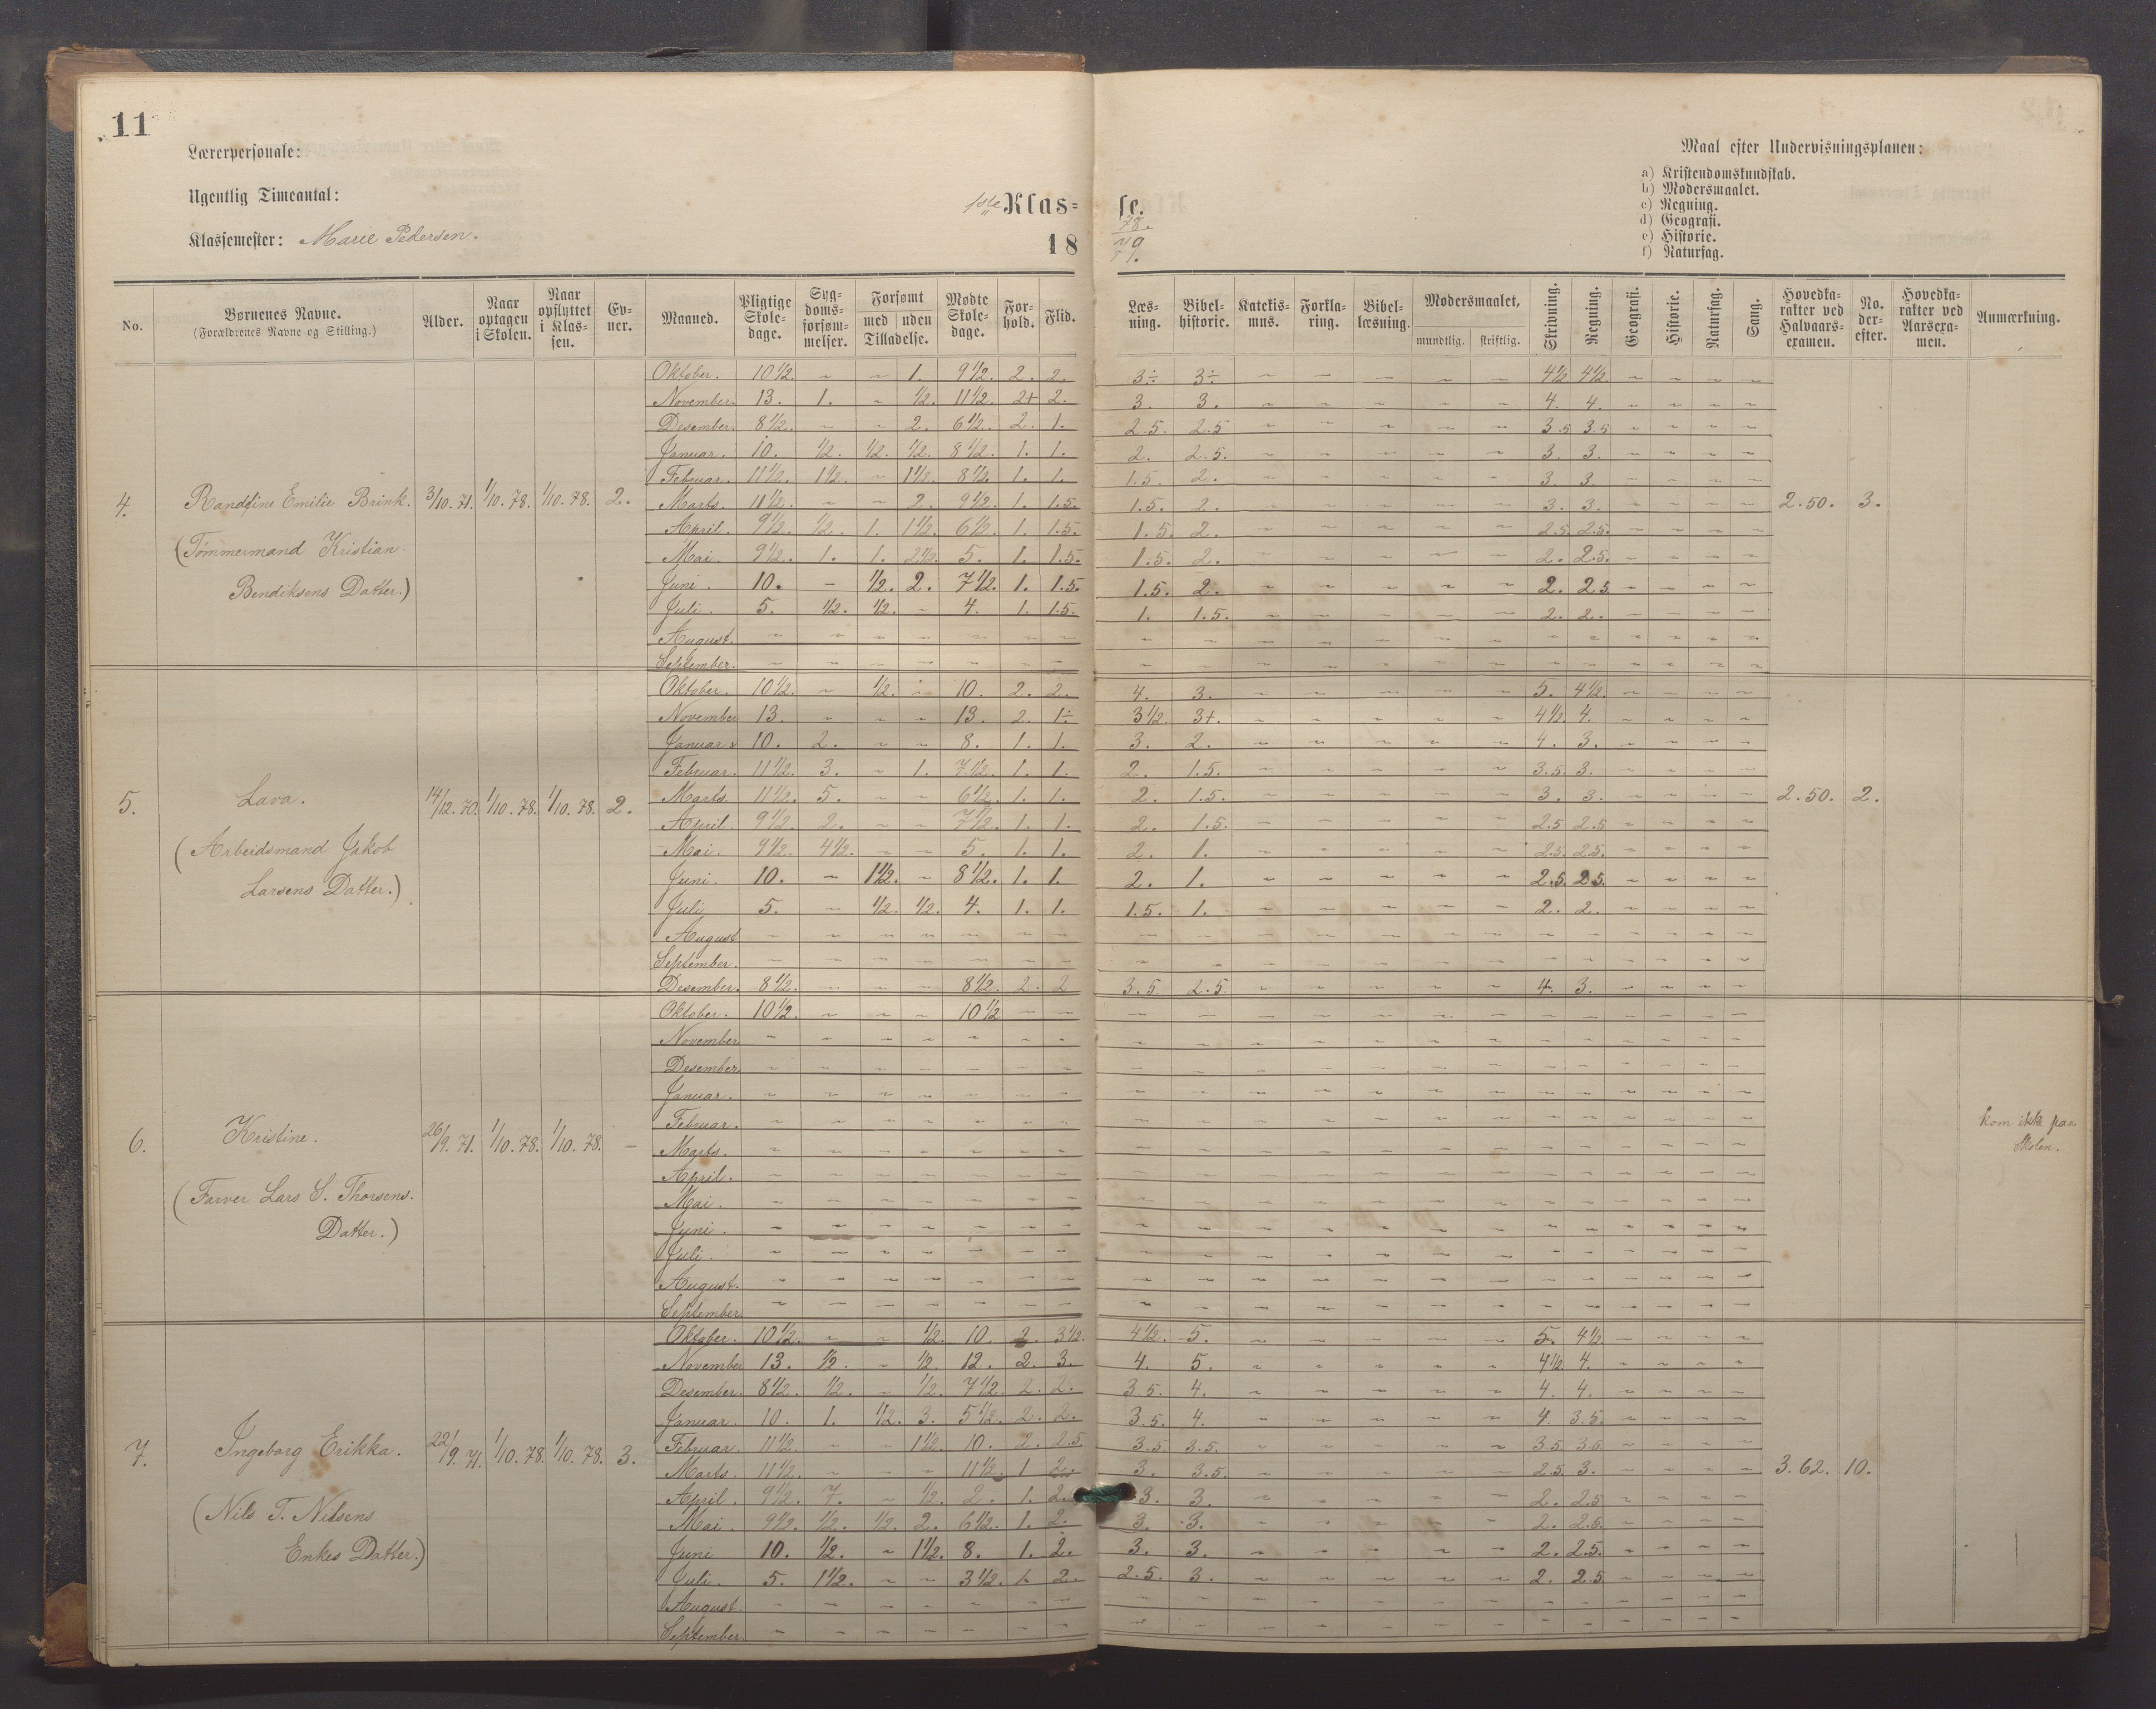 11
Lærerpersonale:
Ugentlig Timeantal:
Klassemester: Marie Pedersen.
1ste Klas= se.
18 78. 79.
Maal efter Undervisningsplanen:
a) Kristendomskundskab.
b) Modersmaalet.
c) Regning.
d) Geografi.
e) Historie.
f) Naturfag.
No. | Børnenes Navne. (Forældrenes Navne og Stilling.) | Alder. | Naar optagen i Skolen. | Naar opflyttet i Klas-sen. | Ev-ner. | Maaned. | Pligtige Skole-dage. | Syg-doms-forsøm-melser. | Forsømt med uden Tilladelse. | Mødte Skole-dage. | For-hold. | Flid. | Læs-ning. | Bibel-historie. | Katekis-mus. | Forkla-ring. | Bibel-læsning. | Modersmaalet, mundtlig. skriftlig. | Skrivning. | Regning. | Geografi. | Historie. | Naturfag. | Sang. | Hovedka-rakter ved Halvaars-examen. | No. der-efter. | Hovedka-rakter ved Aarsexa-men. | Anmærkning.
4. Randfine Emilie Brink. 3/10. 71. 1/10. 78. 1/10. 78. 2. 2.50. 3.
(Tømmermand Kristian
Bendiksens Datter.)
Oktober. 10 1/2. ~ ~ 1. 9 1/2. 2. 2. 3÷ 3÷ ~ ~ ~ ~ ~ 4 1/2 4 1/2. ~ ~ ~ ~
November. 13. 1. ~ 1/2. 11 1/2. 2+ 2. 3. 3. ~ ~ ~ ~ ~ 4. 4. ~ ~ ~ ~
Desember. 8 1/2. ~ ~ 2. 6 1/2. 2. 1. 2.5. 2.5 ~ ~ ~ ~ ~ 3.5 3.5 ~ ~ ~ ~
Januar. 10. 1/2. 1/2. 1/2. 8 1/2. 1. 1. 2. 2.5. ~ ~ ~ ~ ~ 3. 3. ~ ~ ~ ~
Februar. 11 1/2. 1 1/2. ~ 1 1/2. 8 1/2. 1. 1. 1.5. 2. ~ ~ ~ ~ ~ 3. 3. ~ ~ ~ ~
Marts. 11 1/2. ~ ~ 2. 9 1/2. 1. 1.5. 1.5. 2. ~ ~ ~ ~ ~ 3. 3. ~ ~ ~ ~
April. 9 1/2. 1/2. 1. 1 1/2. 6 1/2. 1. 1.5. 1.5. 2. ~ ~ ~ ~ ~ 2.5. 2.5. ~ ~ ~ ~
Mai. 9 1/2. 1. 1. 2 1/2. 5. 1. 1.5. 1.5. 2. ~ ~ ~ ~ ~ 2. 2.5. ~ ~ ~ ~
Juni. 10. ~ 1/2. 2. 7 1/2. 1. 1.5. 1.5. 2. ~ ~ ~ ~ ~ 2. 2.5. ~ ~ ~ ~
Juli. 5. 1/2. 1/2. ~ 4. 1. 1.5. 1. 1.5. ~ ~ ~ ~ ~ 2. 2. ~ ~ ~ ~
August. ~ ~ ~ ~ ~ ~ ~ ~ ~ ~ ~ ~ ~ ~ ~ ~ ~ ~ ~ ~
September. ~ ~ ~ ~ ~ ~ ~ ~ ~ ~ ~ ~ ~ ~ ~ ~ ~ ~ ~ ~
5. Lava. 14/12. 70. 1/10. 78. 1/10. 78. 2. 2.50. 2.
(Arbeidsmand Jakob
Larsens Datter.)
Oktober. 10 1/2. ~ 1/2. ~ 10. 2. 2. 4. 3. ~ ~ ~ ~ ~ 5. 4 1/2. ~ ~ ~ ~
November 13. ~ ~ ~ 13. 2. 1÷ 3 1/2. 3+. ~ ~ ~ ~ ~ 4 1/2. 4. ~ ~ ~ ~
Januar. 10. 2. ~ ~ 8. 1. 1. 3. 2. ~ ~ ~ ~ ~ 4. 3. ~ ~ ~ ~
Februar. 11 1/2. 3. ~ 1. 7 1/2. 1. 1. 2. 1.5. ~ ~ ~ ~ ~ 3.5. 3. ~ ~ ~ ~
Marts. 11 1/2. 5. ~ ~ 6 1/2. 1. 1. 2. 1.5. ~ ~ ~ ~ ~ 3. 3. ~ ~ ~ ~
April. 9 1/2. 2. ~ ~ 7 1/2. 1. 1. 2. 1.5. ~ ~ ~ ~ ~ 2.5 2.5 ~ ~ ~ ~
Mai. 9 1/2. 4 1/2. ~ ~ 5. 1. 1. 2. 1. ~ ~ ~ ~ ~ 2.5. 2.5. ~ ~ ~ ~
Juni. 10. ~ 1 1/2. ~ 8 1/2. 1. 1. 2. 1. ~ ~ ~ ~ ~ 2.5. 2.5. ~ ~ ~ ~
Juli 5. ~ 1/2. 1/2. 4. 1. 1. 1.5. 1. ~ ~ ~ ~ ~ 2. 2. ~ ~ ~ ~
August ~ ~ ~ ~ ~ ~ ~ ~ ~ ~ ~ ~ ~ ~ ~ ~ ~ ~ ~ ~
September. ~ ~ ~ ~ ~ ~ ~ ~ ~ ~ ~ ~ ~ ~ ~ ~ ~ ~ ~ ~
Desember. 8 1/2. ~ ~ ~ 8 1/2. 2. 2 3.5. 2.5. ~ ~ ~ ~ ~ 4. 3. ~ ~ ~ ~
6. Kristine. 26/9. 71. 1/10. 78. 1/10. 78. ~ kom ikke paa Skolen.
(Farver Lars S. Thorsens.
Datter.)
Oktober. 10 1/2. ~ ~ ~ 10 1/2 ~ ~ ~ ~ ~ ~ ~ ~ ~ ~ ~ ~ ~ ~ ~
November ~ ~ ~ ~ ~ ~ ~ ~ ~ ~ ~ ~ ~ ~ ~ ~ ~ ~ ~ ~
Desember. ~ ~ ~ ~ ~ ~ ~ ~ ~ ~ ~ ~ ~ ~ ~ ~ ~ ~ ~ ~
Januar. ~ ~ ~ ~ ~ ~ ~ ~ ~ ~ ~ ~ ~ ~ ~ ~ ~ ~ ~ ~
Februar. ~ ~ ~ ~ ~ ~ ~ ~ ~ ~ ~ ~ ~ ~ ~ ~ ~ ~ ~ ~
Marts. ~ ~ ~ ~ ~ ~ ~ ~ ~ ~ ~ ~ ~ ~ ~ ~ ~ ~ ~ ~
April. ~ ~ ~ ~ ~ ~ ~ ~ ~ ~ ~ ~ ~ ~ ~ ~ ~ ~ ~ ~
Mai. ~ ~ ~ ~ ~ ~ ~ ~ ~ ~ ~ ~ ~ ~ ~ ~ ~ ~ ~ ~
Juni. ~ ~ ~ ~ ~ ~ ~ ~ ~ ~ ~ ~ ~ ~ ~ ~ ~ ~ ~ ~
Juli. ~ ~ ~ ~ ~ ~ ~ ~ ~ ~ ~ ~ ~ ~ ~ ~ ~ ~ ~ ~
August. ~ ~ ~ ~ ~ ~ ~ ~ ~ ~ ~ ~ ~ ~ ~ ~ ~ ~ ~ ~
September ~ ~ ~ ~ ~ ~ ~ ~ ~ ~ ~ ~ ~ ~ ~ ~ ~ ~ ~ ~
7. Ingeborg Erikka. 22/9. 71. 1/10. 78. 1/10. 78. 3. 3.62. 10.
(Nils T. Nilsens
Enkes Datter.)
Oktober. 10 1/2. ~ ~ 1/2. 10. 2. 3 1/2. 4 1/2. 5. ~ ~ ~ ~ ~ 5. 4 1/2 ~ ~ ~ ~
November 13. 1/2. ~ 1/2. 12. 2. 3. 4. 5. ~ ~ ~ ~ ~ 4 1/2. 4. ~ ~ ~ ~
Desember. 8 1/2. 1/2. ~ 1/2. 7 1/2. 2. 2. 3.5. 4. ~ ~ ~ ~ ~ 4. 4. ~ ~ ~ ~
Januar. 10. 1. 1/2. 3. 5 1/2. 2. 2. 3.5. 4. ~ ~ ~ ~ ~ 4. 3.5. ~ ~ ~ ~
Februar. 11 1/2. ~ ~ 1 1/2. 10. 2. 2.5 3.5. 3.5. ~ ~ ~ ~ ~ 3.5. 3.5. ~ ~ ~ ~
Marts. 11 1/2. ~ ~ ~ 11 1/2. 1 2. 3. 3.5. ~ ~ ~ ~ ~ 2.5. 3. ~ ~ ~ ~
April. 9 1/2. 7. ~ 1/2. 2. 1. 2. 3. 3. ~ ~ ~ ~ ~ 2. 2.5 ~ ~ ~ ~
Mai. 9 1/2. 1/2. 1/2. 2. 6 1/2. 1. 2. 3. 3. ~ ~ ~ ~ ~ 2. 2.5. ~ ~ ~ ~
Juni 10. 1/2. ~ 1 1/2. 8. 1. 2. 3. 3. ~ ~ ~ ~ ~ 2. 2.5. ~ ~ ~ ~
Juli. 5. 1 1/2. ~ ~ 3 1/2. 1. 2. 2.5. 3. ~ ~ ~ ~ ~ 2. 2.5 ~ ~ ~ ~
August. ~ ~ ~ ~ ~ ~ ~ ~ ~ ~ ~ ~ ~ ~ ~ ~ ~ ~ ~ ~
September. ~ ~ ~ ~ ~ ~ ~ ~ ~ ~ ~ ~ ~ ~ ~ ~ ~ ~ ~ ~